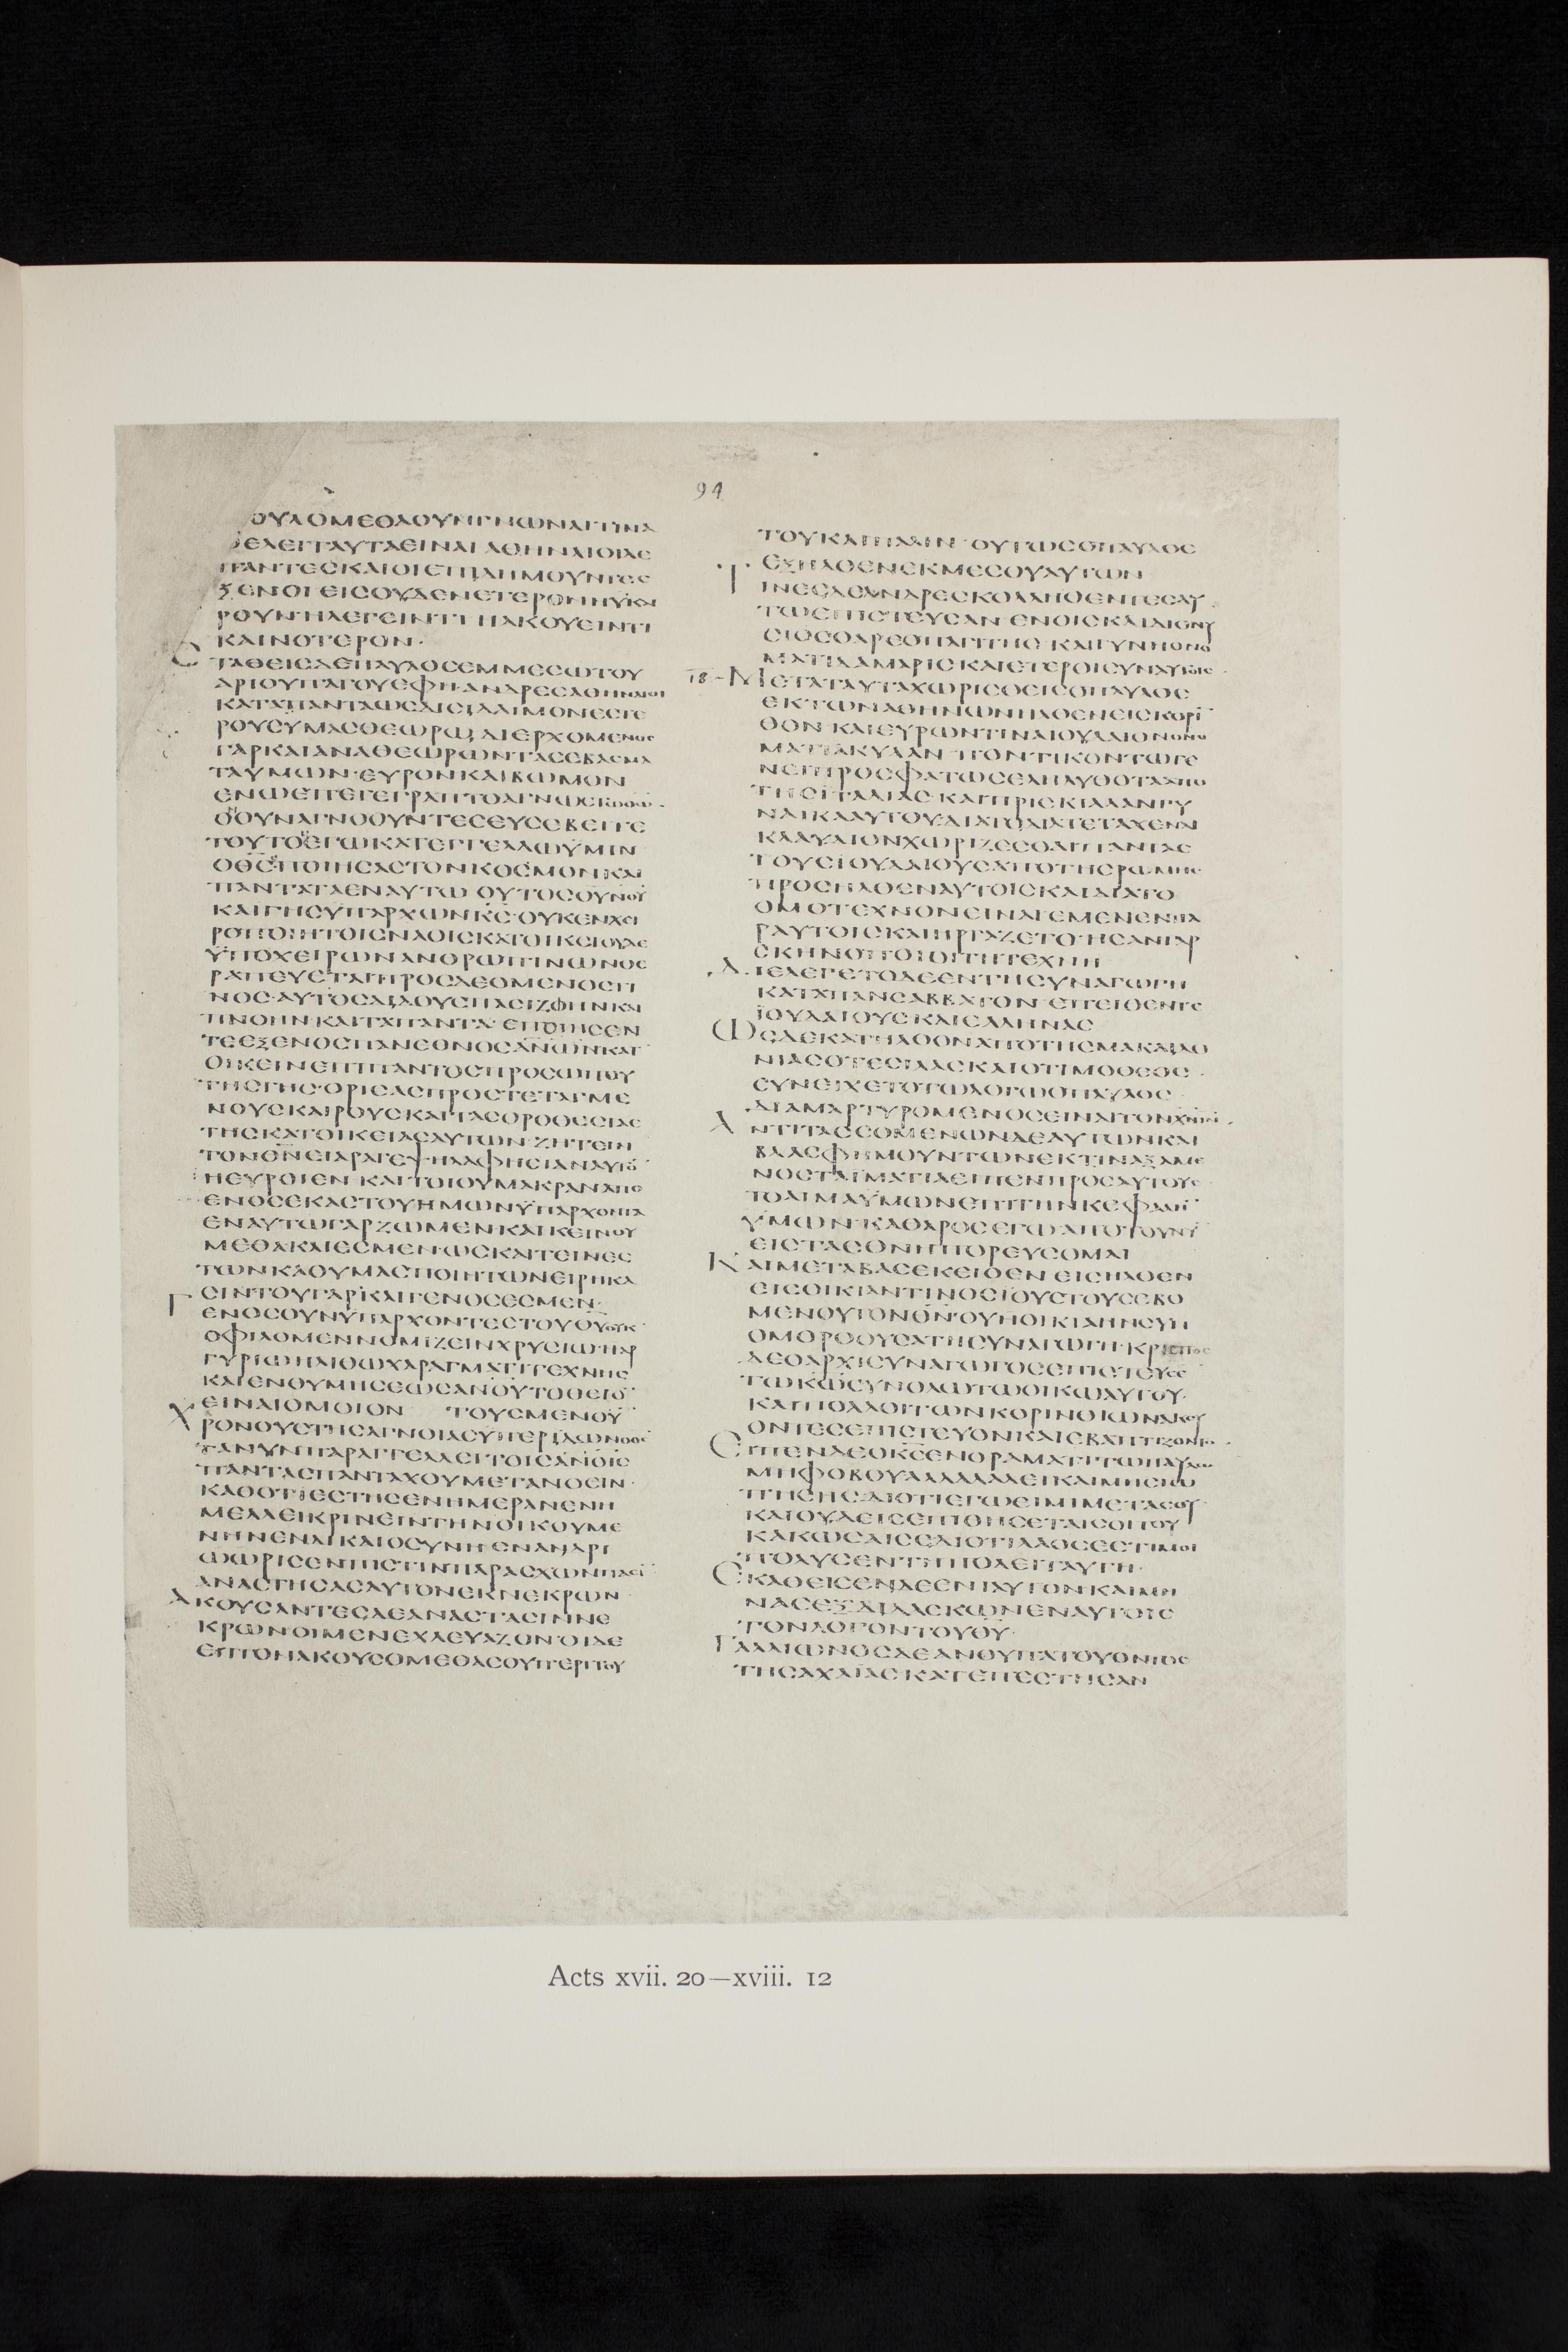 94
ΟΥΛΟΜΕΘΑΟΥΝΓΝΩΝΑΙΤΙΝΑ
ΘΕΛΕΙΤΑΥΤΑΕΙΝΑΙ ΑΘΗΝΑΙΟΙΔΕ
ΠΑΝΤΕϹΚΑΙΟΙΕΠΙΔΗΜΟΥΝΤΕϹ
ΞΕΝΟΙ ΕΙϹΟΥΔΕΝΕΤΕΡΟΝΗΥΚΑΙ
ΡΟΥΝΗΛΕΓΕΙΝΤΙ ΗΑΚΟΥΕΙΝΤΙ
ΚΑΙΝΟΤΕΡΟΝ·
ϹΤΑΘΕΙϹΔΕΠΑΥΛΟϹΕΜΜΕϹΩΤΟΥ
ΑΡΙΟΥΠΑΓΟΥΕΦΗ·ΑΝΔΡΕϹΑΘΗΝΑΙΟΙ
ΚΑΤΑΠΑΝΤΑΩϹΔΙϹΙΔΑΙΜΟΝΕϹΤΕ
ΡΟΥϹΥΜΑϹΘΕΩΡΩ ΔΙΕΡΧΟΜΕΝΟϹ
ΓΑΡΚΑΙΑΝΑΘΕΩΡΩΝΤΑϹΕΒΑϹΜΑ
ΤΑΥΜΩΝ·ΕΥΡΟΝΚΑΙΒΩΜΟΝ
ΕΝΩΕΠΕΓΕΓΡΑΠΤΟΑΓΝΩϹΤΩΘΩ·
ΟΟΥΝΑΓΝΟΟΥΝΤΕϹΕΥϹΕΒΕΙΤΕ
ΤΟΥΤΟΕΓΩΚΑΤΕΓΓΕΛΛΩΫΜΙΝ
ΟΘϹΟΠΟΙΗϹΑϹΤΟΝΚΟϹΜΟΝΚΑΙ
ΠΑΝΤΑΤΑΕΝΑΥΤΩ ΟΥΤΟϹΟΥΝΟΥ
ΚΑΙΓΗϹΥΠΑΡΧΩΝΚϹ·ΟΥΚΕΝΧΕΙ
ΡΟΠΟΙΗΤΟΙϹΝΑΟΙϹΚΑΤΟΙΚΕΙΟΥΔΕ
ΫΠΟΧΕΙΡΩΝΑΝΘΡΩΠΙΝΩΝΘΕ
ΡΑΠΕΥΕΤΑΙΠΡΟϹΔΕΟΜΕΝΟϹΤΙ
ΝΟϹ·ΑΥΤΟϹΔΙΔΟΥϹΠΑϹΙΖΩΗΝΚΑΙ
ΠΝΟΗΝ·ΚΑΙΤΑΠΑΝΤΑ·ΕΠΟΙΗϹΕΝ
ΤΕΕΞΕΝΟϹΠΑΝΕΘΝΟϹΑΝΩΝΚΑΤ
ΟΙΚΕΙΝΕΠΙΠΑΝΤΟϹΠΡΟϹΩΠΟΥ
ΤΗϹΓΗϹ·ΟΡΙϹΑϹΠΡΟϹΤΕΤΑΓΜΕ
ΝΟΥϹΚΑΙΡΟΥϹΚΑΙΤΑϹΟΡΟΘΕϹΙΑϹ
ΤΗϹΚΑΤΟΙΚΕΙΑϹΑΥΤΩΝ·ΖΗΤΕΙΝ
ΤΟΝΘΝΕΙΑΡΑΓΕΨΗΛΑΦΗϹΙΑΝΑΥΤΟ
ΗΕΥΡΟΙΕΝ·ΚΑΙΤΟΙΟΥΜΑΚΡΑΝΑΠΟ
ΕΝΟϹΕΚΑϹΤΟΥΗΜΩΝΫΠΑΡΧΟΝΤΑ
ΕΝΑΥΤΩΓΑΡΖΩΜΕΝΚΑΙΚΕΙΝΟΥ
ΜΕΘΑΚΑΙΕϹΜΕΝ·ΩϹΚΑΙΤΕΙΝΕϹ
ΤΩΝΚΑΘΥΜΑϹΠΟΙΗΤΩΝΕΙΡΗΚΑ
ϹΙΝΤΟΥΓΑΡΚΑΙΓΕΝΟϹΕϹΜΕΝ·
ΓΕΝΟϹΟΥΝΫΠΑΡΧΟΝΤΕϹΤΟΥΘΥΟΥΚ
ΟΦΙΛΟΜΕΝΝΟΜΙΖΕΙΝΧΡΥϹΙΩΗΑΡ
ΓΥΡΙΩΗΛΙΘΩΧΑΡΑΓΜΑΤΙΤΕΧΝΗϹ
ΚΑΙΕΝΘΥΜΗϹΕΩϹΑΝΟΥΤΟΘΕΙΟ
ΕΙΝΑΙΟΜΟΙΟΝ ΤΟΥϹΜΕΝΟΥ
ΧΡΟΝΟΥϹΤΗϹΑΓΝΟΙΑϹΥΠΕΡΙΔΩΝΟΘϹ
ΤΑΝΥΝΠΑΡΑΓΓΕΛΛΕΙΤΟΙϹΑΝΟΙϹ
ΠΑΝΤΑϹΠΑΝΤΑΧΟΥΜΕΤΑΝΟΕΙΝ·
ΚΑΘΟΤΙΕϹΤΗϹΕΝΗΜΕΡΑΝΕΝΗ
ΜΕΛΛΕΙΚΡΙΝΕΙΝΤΗΝΟΙΚΟΥΜΕ
ΝΗΝΕΝΔΙΚΑΙΟϹΥΝΗΕΝΑΝΔΡΙ
ΩΩΡΙϹΕΝΠΙϹΤΙΝΠΑΡΑϹΧΩΝΠΑϹΙ
ΑΝΑϹΤΗϹΑϹΑΥΤΟΝΕΚΝΕΚΡΩΝ
ΑΚΟΥϹΑΝΤΕϹΔΕΑΝΑϹΤΑϹΙΝΝΕ
ΚΡΩΝΟΙΜΕΝΕΧΛΕΥΑΖΟΝ·ΟΙΔΕ
ΕΙΠΟΝΑΚΟΥϹΟΜΕΘΑϹΟΥΠΕΡΙΤΟΥ
ΤΟΥΚΑΙΠΑΛΙΝ·ΟΥΤΩϹΟΠΑΥΛΟϹ
ΕΞΗΛΘΕΝΕΚΜΕϹΟΥΑΥΤΩΝ
ΤΙΝΕϹΔΕΑΝΔΡΕϹΚΟΛΛΗΘΕΝΤΕϹΑΥ
ΤΩΕΠΙϹΤΕΥϹΑΝ ΕΝΟΙϹΚΑΙΔΙΟΝΥ
ϹΙΟϹΟΑΡΕΟΠΑΓΙΤΗϹ ΚΑΙΓΥΝΗΟΝΟ
ΜΑΤΙΔΑΜΑΡΙϹΚΑΙΕΤΕΡΟΙϹΥΝΑΥΤΟΙϹ·
ΙΗ-ΜΕΤΑΤΑΥΤΑΧΩΡΙϹΘΕΙϹΟΠΑΥΛΟϹ
ΕΚΤΩΝΑΘΗΝΩΝΗΛΘΕΝΕΙϹΚΟΡΙ
ΘΟΝ·ΚΑΙΕΥΡΩΝΤΙΝΑΙΟΥΔΑΙΟΝΟΝΟ
ΜΑΤΙΑΚΥΛΑΝ·ΠΟΝΤΙΚΟΝΤΩΓΕ
ΝΕΙΠΡΟϹΦΑΤΩϹΕΛΗΛΥΘΟΤΑΑΠΟ
ΤΗϹΪΤΑΛΙΑϹ·ΚΑΙΠΡΙϹΚΙΛΛΑΝΓΥ
ΝΑΙΚΑΑΥΤΟΥΔΙΑΤΟΔΙΑΤΕΤΑΧΕΝΑΙ
ΚΛΑΥΔΙΟΝΧΩΡΙΖΕϹΘΑΙΠΑΝΤΑϹ
ΤΟΥϹΪΟΥΔΑΙΟΥϹΑΠΟΤΗϹΡΩΜΗϹ·
ΠΡΟϹΗΛΘΕΝΑΥΤΟΙϹΚΑΙΔΙΑΤΟ
ΟΜΟΤΕΧΝΟΝΕΙΝΑΙΕΜΕΝΕΝΠΑ
ΡΑΥΤΟΙϹΚΑΙΗΡΓΑΖΕΤΟ·ΗϹΑΝΓΑΡ
ϹΚΗΝΟΠΟΙΟΙΤΗΤΕΧΝΗ
ΔΙΕΛΕΓΕΤΟΔΕΕΝΤΗϹΥΝΑΓΩΓΗ
ΚΑΤΑΠΑΝϹΑΒΒΑΤΟΝ·ΕΠΕΙΘΕΝΤΕ
ΪΟΥΔΑΙΟΥϹΚΑΙΕΛΛΗΝΑϹ
ΩϹΔΕΚΑΤΗΛΘΟΝΑΠΟΤΗϹΜΑΚΑΙΔΟ
ΝΙΑϹΟΤΕϹΙΛΑϹΚΑΙΟΤΙΜΟΘΕΟϹ·
ϹΥΝΕΙΧΕΤΟΤΩΛΟΓΩΟΠΑΥΛΟϹ
ΔΙΑΜΑΡΤΥΡΟΜΕΝΟϹΕΙΝΑΙΤΟΝΧΝΙΝ·
ΑΝΤΙΤΑϹϹΟΜΕΝΩΝΔΕΑΥΤΩΝΚΑΙ
ΒΛΑϹΦΗΜΟΥΝΤΩΝΕΚΤΙΝΑΞΑΜΕ
ΝΟϹΤΑΙΜΑΤΙΑΕΙΠΕΝΠΡΟϹΑΥΤΟΥϹ
ΤΟΑΙΜΑΫΜΩΝΕΠΙΤΗΝΚΕΦΑΛΗ
ΫΜΩΝ·ΚΑΘΑΡΟϹΕΓΩΑΠΟΤΟΥΝΥ
ΕΙϹΤΑΕΘΝΗΠΟΡΕΥϹΟΜΑΙ
ΚΑΙΜΕΤΑΒΑϹΕΚΕΙΘΕΝ ΕΙϹΗΛΘΕΝ
ΕΙϹΟΙΚΙΑΝΤΙΝΟϹΪΟΥϹΤΟΥϹΕΒΟ
ΜΕΝΟΥΤΟΝΘΝ·ΟΥΗΟΙΚΙΑΗΝϹΥΝ
ΟΜΟΡΟΟΥϹΑΤΗϹΥΝΑΓΩΓΗ·ΚΡΙϹΠΟϹ
ΔΕΟΑΡΧΙϹΥΝΑΓΩΓΟϹΕΠΙϹΤΕΥϹΕ
ΤΩΚΩϹΥΝΟΛΩΤΩΟΙΚΩΑΥΤΟΥ·
ΚΑΙΠΟΛΛΟΙΤΩΝΚΟΡΙΝΘΙΩΝΑΚΟΥ
ΟΝΤΕϹΕΠΙϹΤΕΥΟΝΚΑΙΕΒΑΠΤΙΖΟΝΤΟ·
ΕΙΠΕΝΔΕΟΚϹΕΝΟΡΑΜΑΤΙΤΩΠΑΥΛΩ
ΜΗΦΟΒΟΥΑΛΛΑΛΑΛΕΙΚΑΙΜΗϹΙΩ
ΠΗϹΗϹ·ΔΙΟΤΙΕΓΩΕΙΜΙΜΕΤΑϹΟΥ
ΚΑΙΟΥΔΕΙϹΕΠΙΘΗϹΕΤΑΙϹΟΙΤΟΥ
ΚΑΚΩϹΑΙϹΕΔΙΟΤΙΛΑΟϹΕϹΤΙΜΟΙ
ΠΟΛΥϹΕΝΤΗΠΟΛΕΙΤΑΥΤΗ·
ΕΚΑΘΕΙϹΕΝΔΕΕΝΙΑΥΤΟΝΚΑΙΜΗ
ΝΑϹΕΞΔΙΔΑϹΚΩΝΕΝΑΥΤΟΙϹ
ΤΟΝΛΟΓΟΝΤΟΥΘΥ·
ΓΑΛΛΙΩΝΟϹΔΕΑΝΘΥΠΑΤΟΥΟΝΤΟϹ
ΤΗϹΑΧΑΪΑϹΚΑΤΕΠΕϹΤΗϹΑΝ
Acts xvii. 20—xviii. 12